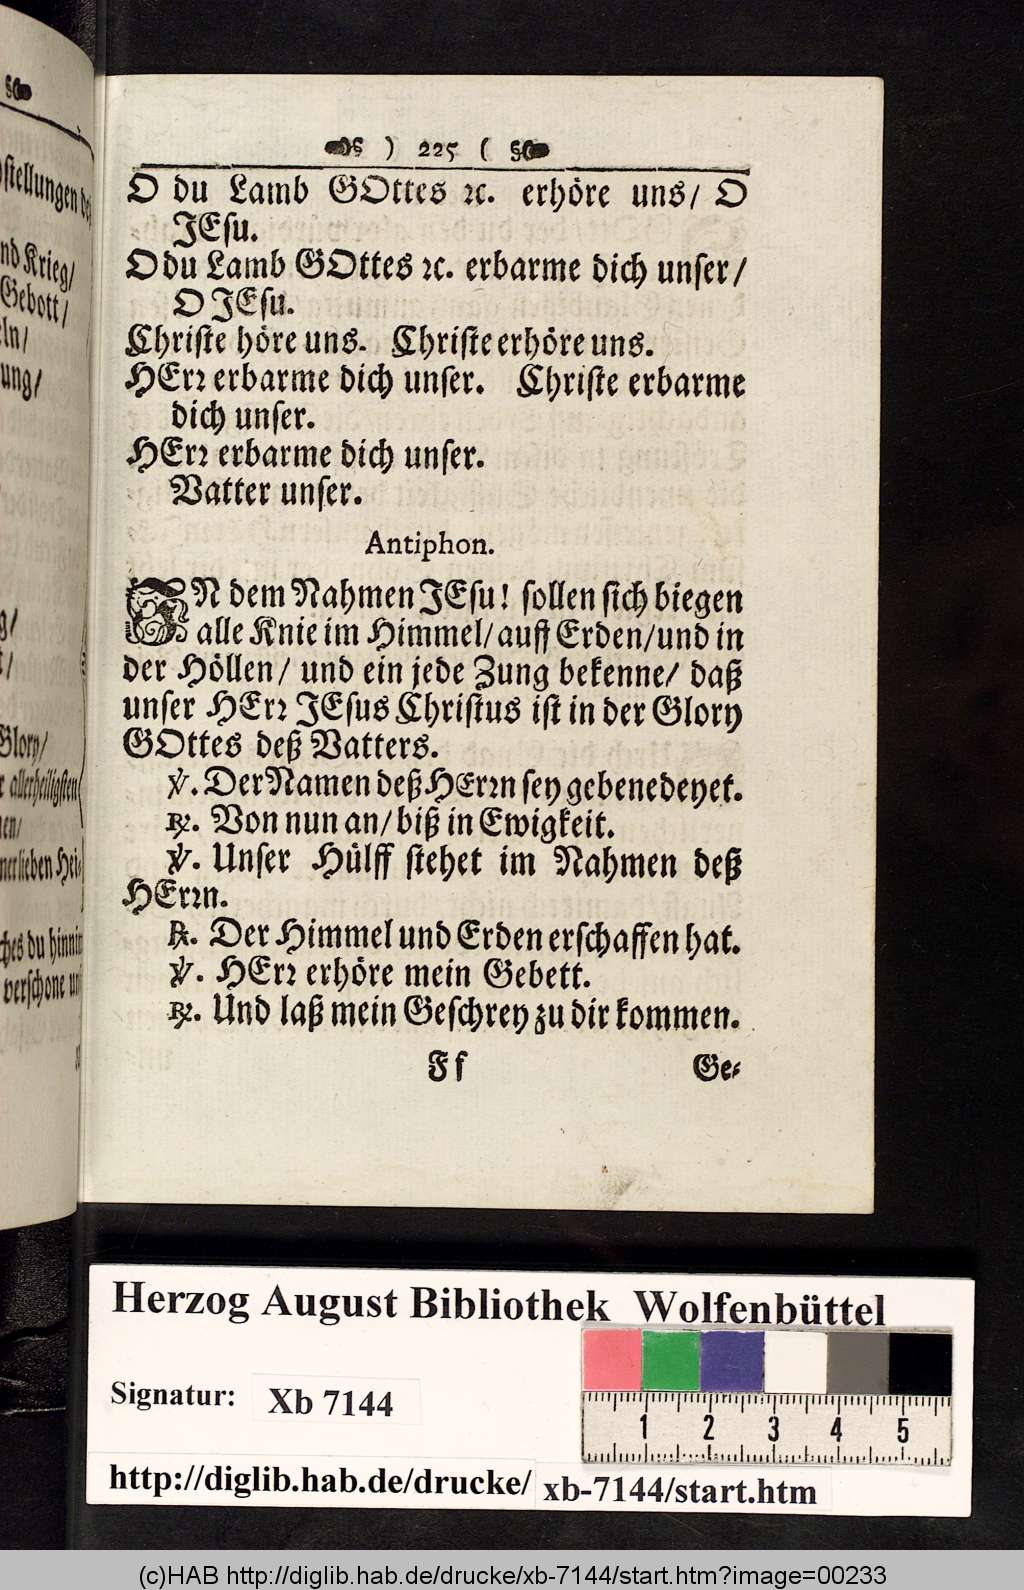 ) 225 (
O du Lamb GOttes ꝛc. erhöre uns/ O
JEsu.
O du Lamb GOttes ꝛc. erbarme dich unser/
O JEsu.
Christe höre uns. Christe erhöre uns.
HErꝛ erbarme dich unser. Christe erbarme
dich unser.
HErꝛ erbarme dich unser.
Vatter unser.
Antiphon.
IN dem Nahmen JEsu! sollen sich biegen
alle Knie im Himmel/ auff Erden/ und in
der Höllen/ und ein jede Zung bekenne/ daß
unser HErꝛ JEsus Christus ist in der Glory
GOttes deß Vatters.
℣. Der Namen deß HErꝛn sey gebenedeyet.
℟. Von nun an/ biß in Ewigkeit.
℣. Unser Hülff stehet im Nahmen deß
HErꝛn.
℟. Der Himmel und Erden erschaffen hat.
℣. HErꝛ erhöre mein Gebett.
℟. Und laß mein Geschrey zu dir kommen.
Ff
Ge-
stellungen
Krieg/
Gebott/
Glory/
allerheiligsten
lieben Hei-
du
verschone
Herzog August Bibliothek Wolfenbüttel
Signatur: Xb 7144
1 2 3 4 5
http://diglib.hab.de/drucke/ xb-7144/start.htm
(c)HAB http://diglib.hab.de/drucke/xb-7144/start.htm?image=00233